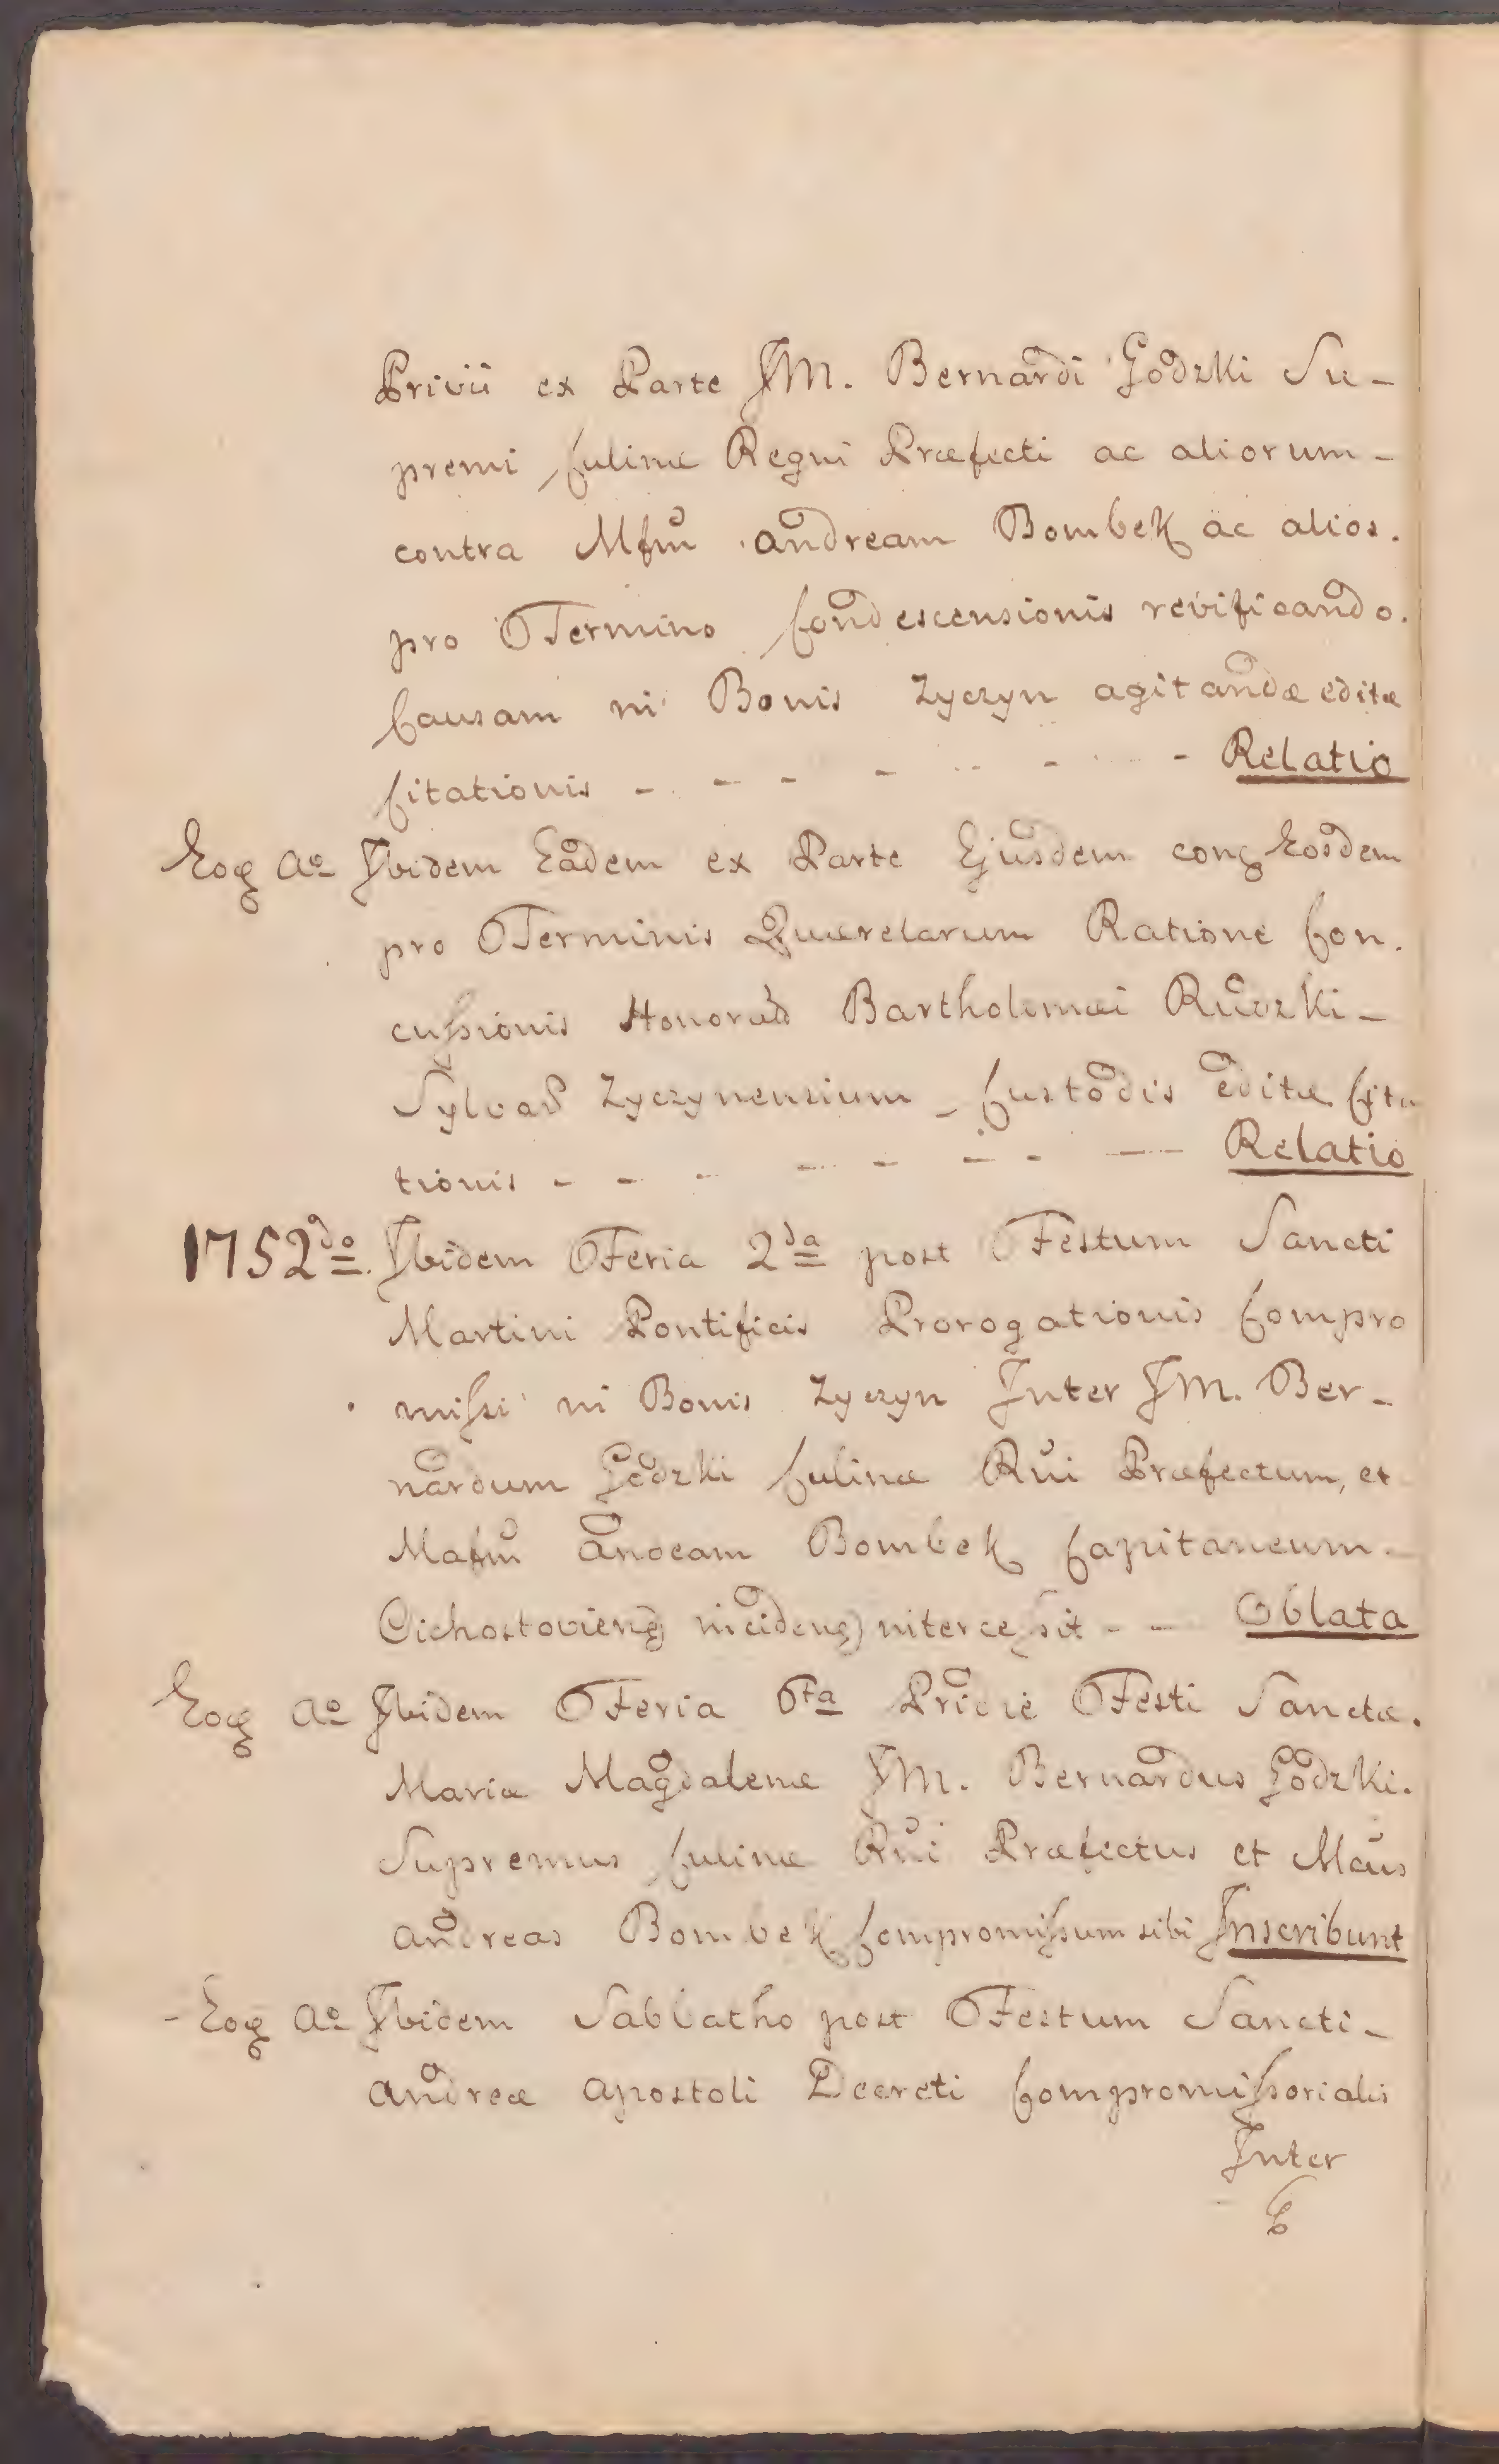 Privii ex Parte JM. Bernardi Godzki Su-
premi Culinæ Regni Præfecti ac aliorum-
contra Mfm̃ Andream Bombek ac alios.
pro Termino Condescensionis revificando.
Causam in Bonis Zyczyn agitandæ editæ
Citationis - - - - - - Relatio
Eoq Aº Ibidem Eadem ex Parte Ejusdem conq Eosdem
pro Terminis Quærelarum Ratione Con.
cussionis Bartholomæi
Zyczynensium - Custodis editæ Cita
tionis - - - - - - Relatio
1752do Ibidem Feria 2da post Festum Sancti
Martini Pontificis Prorogationis Compro
missi in Bonis Zyczyn Inter JM. Ber-
nardum Godzki Culinæ Rñi Præfectum, et
Bombek Capitaneum-
intercessit - - Oblata
Eoq Aº Ibidem Feria 6ta Pridie Festi Sanctæ.
Mariæ Magdalenæ JM. Bernardus Godzki.
Supremus Culinæ Rñi Præfectus et
Andreas Bombek Compromissum sibi Inscribunt
- Eoq Aº Ibidem Sabbatho post Festum Sancti-
Andreæ Apostoli Decreti Compromissorialis
Inter